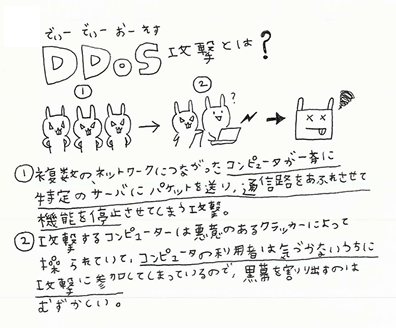 でぃー でぃー おー えす
DDoS 攻撃とは?
① ②
?
① 複数のネットワークにつながったコンピュータが一斉に
特定のサーバにパケットを送り、通信路をあふれさせて
機能を停止させてしまう攻撃。
② 攻撃するコンピューターは悪意のあるクラッカーによって
操られていて、コンピュータの利用者は気づかないうちに
攻撃に参加してしまっているので、黒幕を割り出すのは
むずかしい。